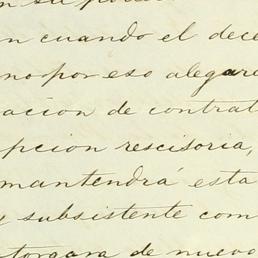 un cuando el dece
no por eso alegar
acion de contrat
pcion rescisoria,
mantendrá esta
y subsistente com
otorgara de nuevo